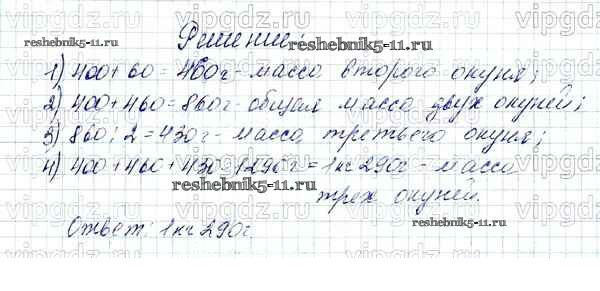 Решение:
1) 400 + 60 = 460г - масса второго окуня;
2) 400 + 460 = 860г - общая масса двух окуней;
3) 860 : 2 = 430г - масса третьего окуня;
4) 400 + 460 + 430 = 1290г = 1кг 290г - масса
трех окуней.
Ответ: 1кг 290г.
vipgdz.ru
reshebnik5-11.ru
reshebnik5-11.ru
reshebnik5-11.ru
reshebnik5-11.ru